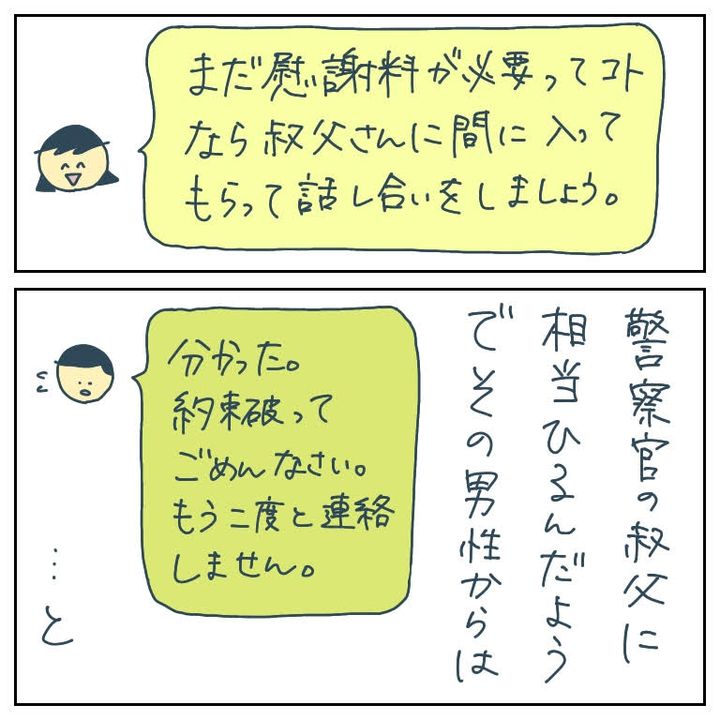 まだ慰謝料が必要ってコト
なら叔父さんに間に入って
もらって話し合いをしましょう。
警察官の叔父に
相当ひるんだよう
でその男性からは
分かった。
約束破って
ごめんなさい。
もう二度と連絡
しません。
…と